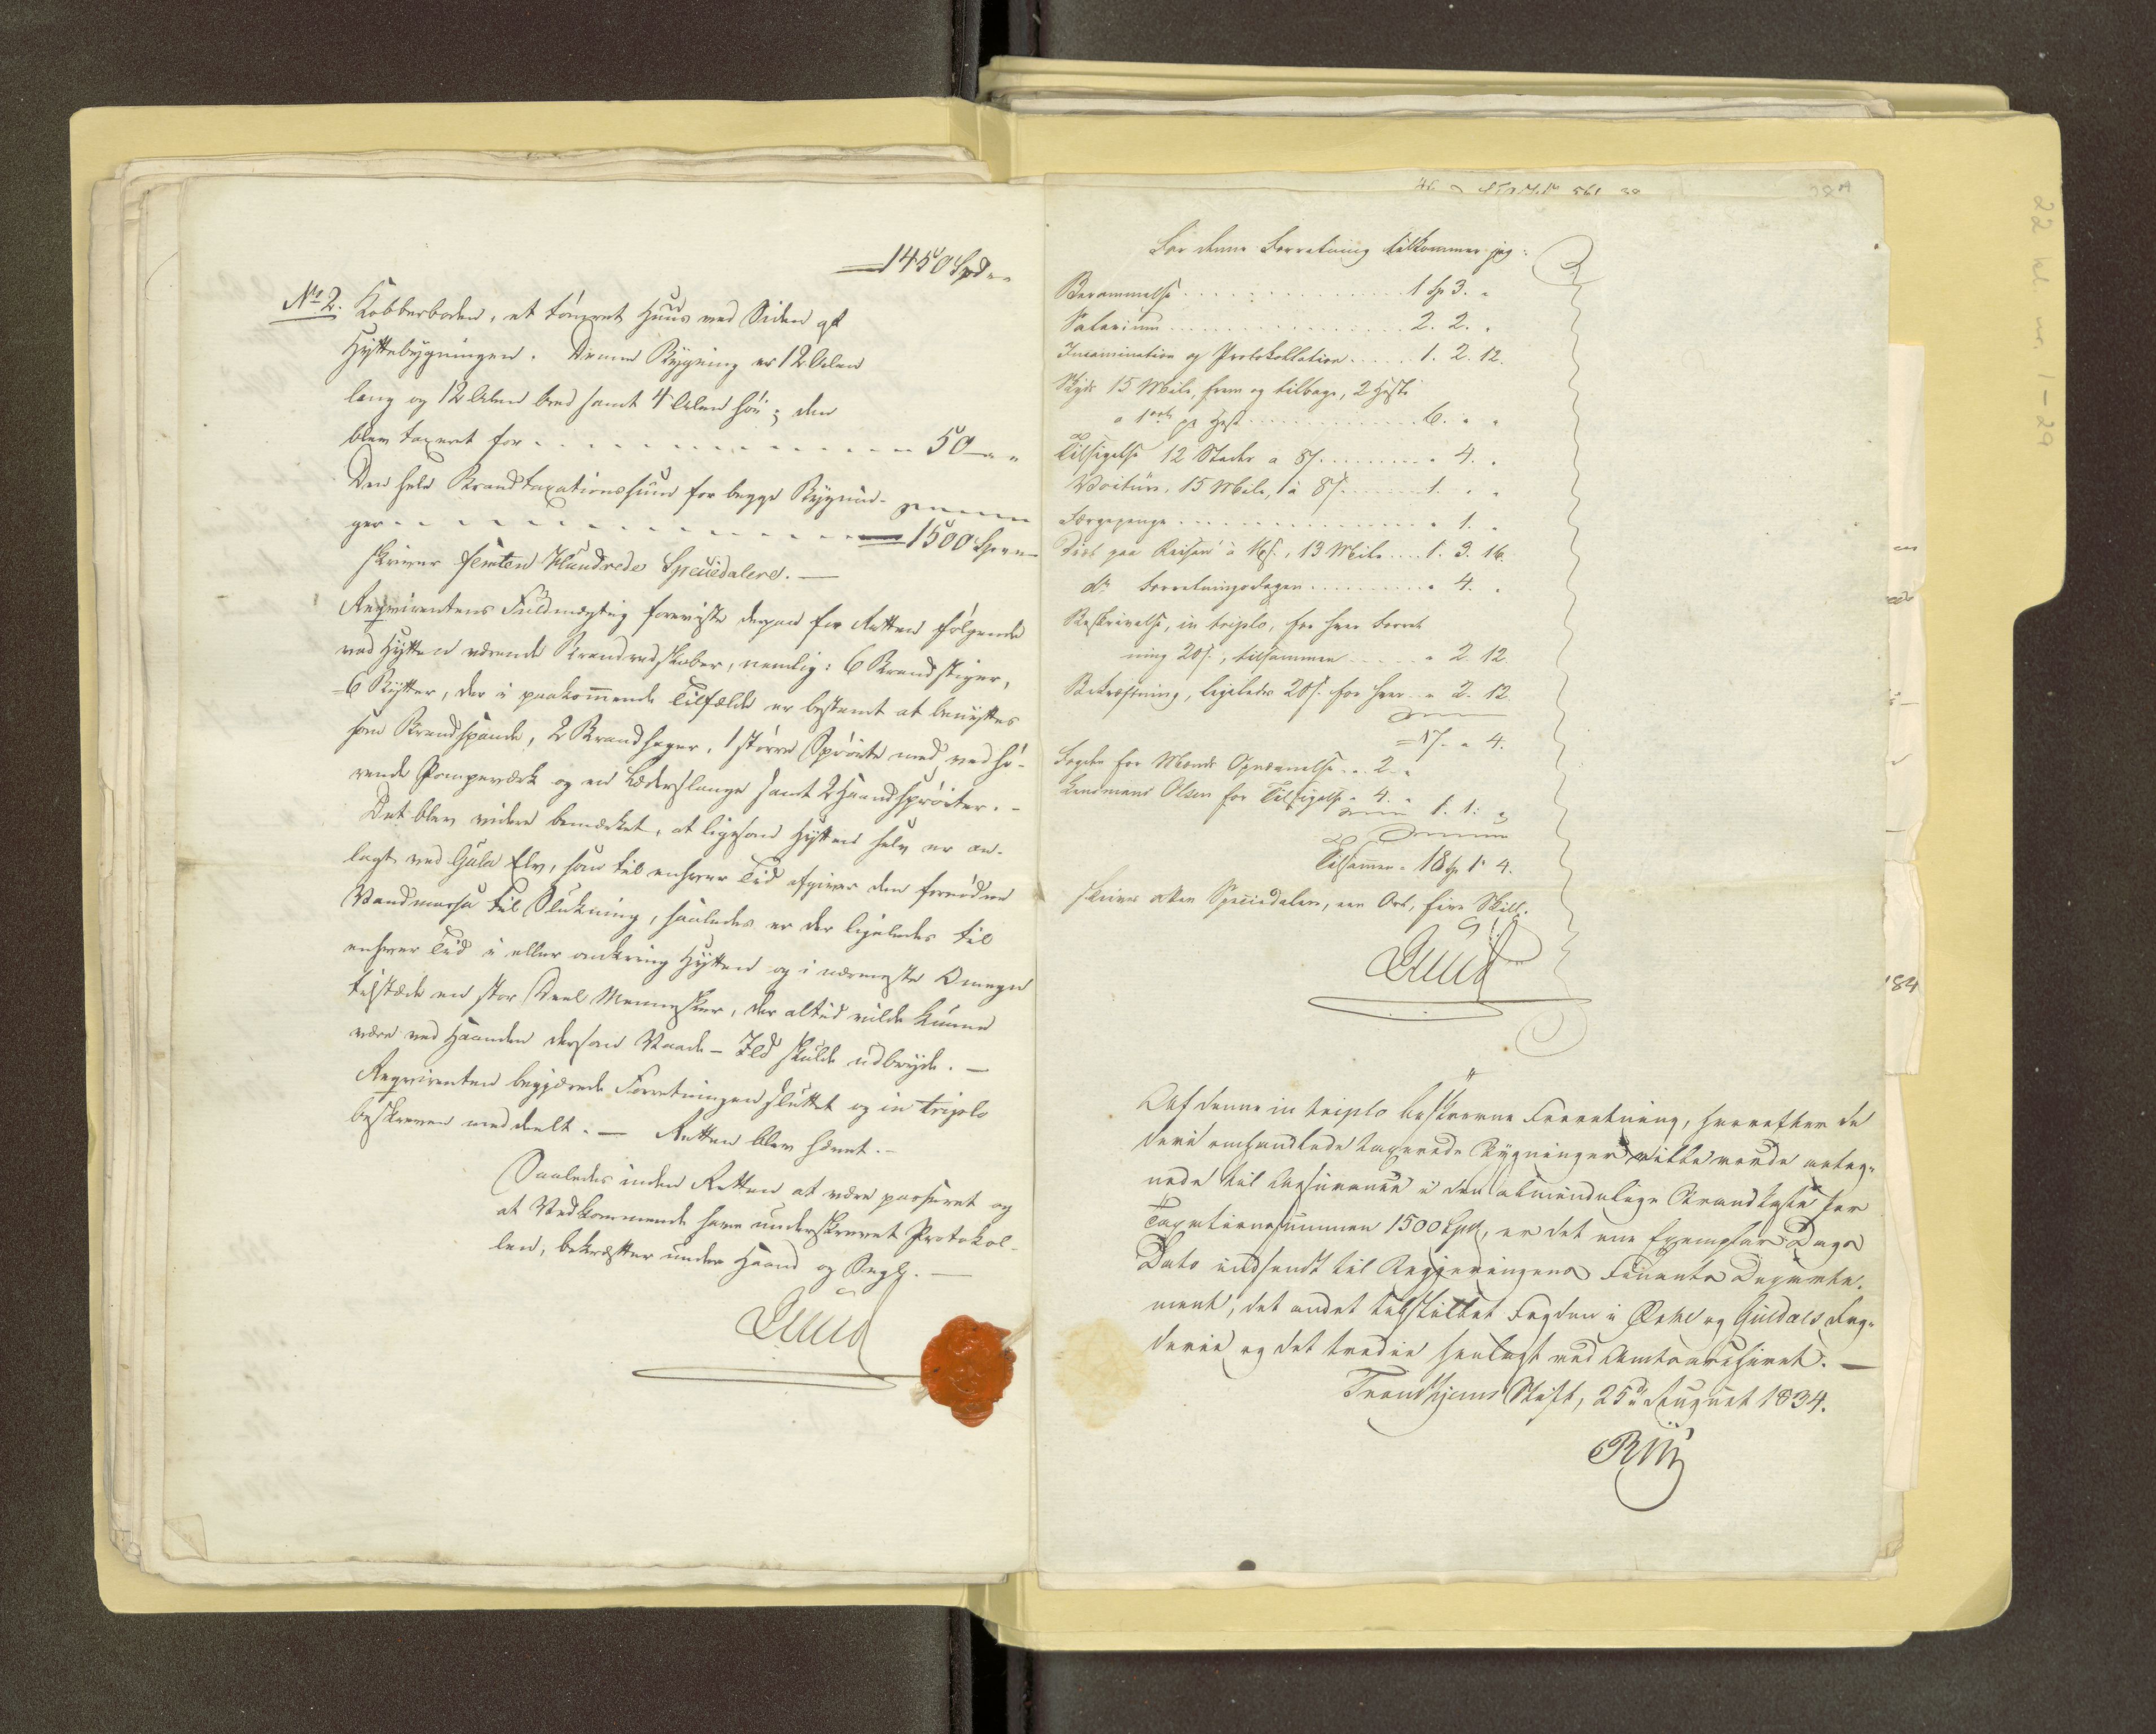 1450 Spd „ „
No 2. Kobberboden, et tömret Huus ved Siden af
Hyttebygningen. Denne Bygning er 12 Alen
lang og 12 Alen bred samt 4 Alen høi; den
blev taxeret for . . . . . . . . . . 50 „ „
Den hele Brandtaxationssum for begge Bygnin-
ger . . . . . . . . . . 1500 Spd „ „
skriver femten Hundrede Speciedalere. —
Reqvirentens Fuldmægtig foreviste derpaa for Retten følgende
ved Hytten værende Brandredskaber, nemlig: 6 Brandstiger,
6 Bytter, der i paakom̅ende Tilfælde er bestemt at benyttes
som Brandspande, 2 Brandhager, 1 større Sprøite med vedhø-
rende Pompeværk og en Læderslange samt 2 Haandsprøiter. –
Det blev videre bemærket, at ligesom Hytten selv er an-
lagt ved Gula Elv, som til enhver Tid afgiver den fornødne
Vandmasse til Slukning, saaledes er der ligeledes til
enhver Tid i eller omkring Hytten og i nærmeste Omegn
tilstæde en stor Deel Mennesker, der altid vilde kunne
være ved Haanden dersom Vaade-Ild skulde udbryde. —
Reqvirenten begjærede Forretningen sluttet og in triplo
beskreven meddeelt. — Retten blev hævet. –
Saaledes inden Retten at være passeret og
at Vedkommende have underskrevet Protokol-
len, bekræfter under Haand og Segl. —
For denne Forretning tilkommer jeg:
Berammelse . . . . . 1 Sp 3. „
Salarium . . . . . 2. 2. „
Incamination og Protokollation . . . . . 1. 2. 12.
Skyds 15 Mile, frem og tilbage, 2 Heste
a 1 ort pr Hest . . . . . 6. „ „
Tilsigelse 12 Steder a 8 s. . . . . . „ 4. „
Voiture, 15 Mile, à 8 s. . . . . . 1. „ „
Færgepenge . . . . . „ 1. „
Diæt paa Reisen à 16 s., 13 Mile . . . . 1. 3. 16.
do Forretningsdagen . . . . . „ 4. „
Beskrivelse, in triplo, for hver Forret
ning 20 s., tilsammen . . . . . „ 2. 12
Bekræftning, ligeledes 20 s. for hver . . „ 2. 12
= 17. „ 4.
Fogden for Mænds Opnævnelse . . 2 „
Lensmand Olsen for Tilsigelse „ 4. „ 1. 1. „
Tilsam̅en 18 Sp 1. 4.
skriver atten Speciedalere, een Ort, fire Skill.
Af denne in triplo beskrevne Forretning, hvorefter de
deri omhandlede taxerede Bygninger ville vorde anteg-
nede til Assurance i den almindelige Brandkasse for
Taxationssummen 1500 Spd, er det ene Exemplar Dags
Dato indsendt til Regjeringens Finants Departe-
ment, det andet tilstillet Fogden i Orkd og Guldals Fog-
derie og det tredie henlagt ved Amtsarchivet. —
Trondhjems Stift, 25de August 1834.
22 kl nr 1-29